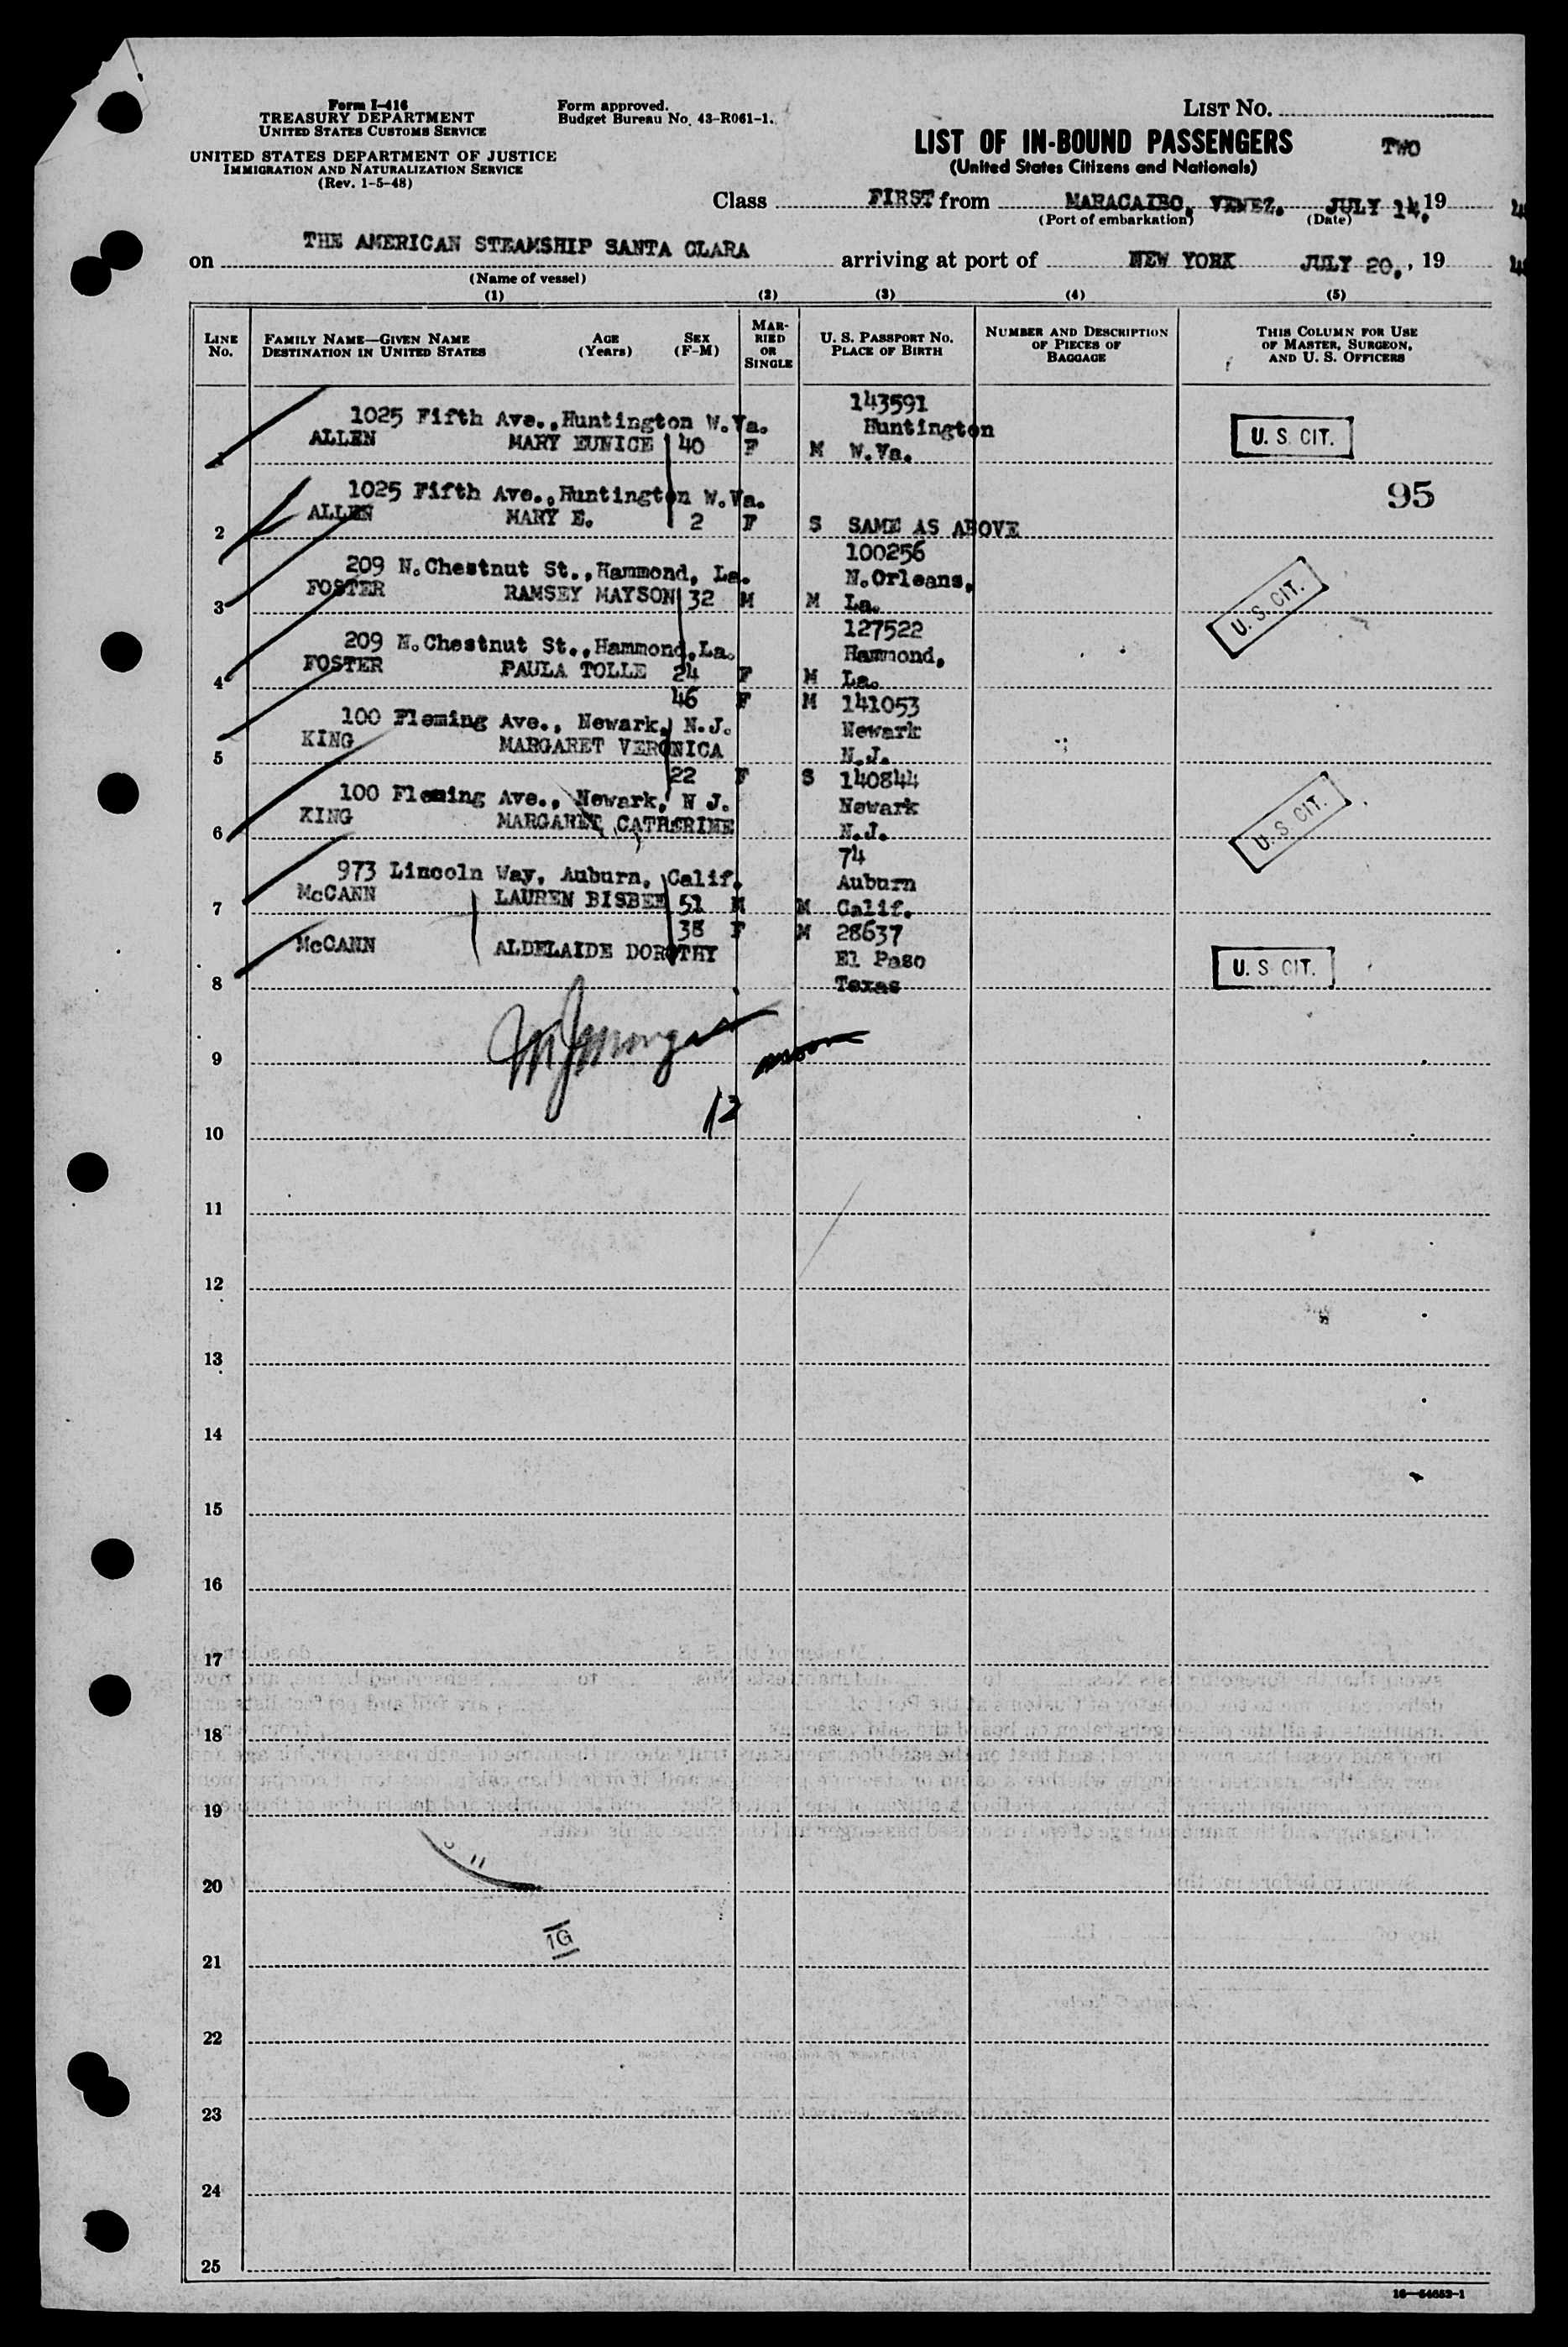 Form I-416
TREASURY DEPARTMENT
UNITED STATES CUSTOMS SERVICE
UNITED STATES DEPARTMENT OF JUSTICE
IMMIGRATION AND NATURALIZATION SERVICE
(Rev. 1-5-48)
Form approved.
Budget Bureau No. 43-R061-1.
LIST NO.
LIST OF IN-BOUND PASSENGERS TWO
(United States Citizens and Nationals)
Class FIRST from MARACAIBO, VENEZ. JULY 14, 19
(Port of embarkation) (Date)
on THE AMERICAN STEAMSHIP SANTA CLARA arriving at port of NEW YORK JULY 20, , 19
(Name of vessel)
(1) (2) (3) (4) (5)
LINE No.
FAMILY NAME—GIVEN NAME AGE SEX
DESTINATION IN UNITED STATES (Years) (F-M)
MARRIED OR SINGLE
U. S. PASSPORT NO.
PLACE OF BIRTH
NUMBER AND DESCRIPTION
OF PIECES OF
BAGGAGE
THIS COLUMN FOR USE
OF MASTER, SURGEON,
AND U. S. OFFICERS
143591
1025 Fifth Ave.,Huntington W.Va. Huntington
1 ALLEN MARY EUNICE 40 F M W.Va. U. S. CIT.
1025 Fifth Ave.,Huntington W.Va. 95
ALLEN MARY E. 2 F
2 S SAME AS ABOVE
100256
209 N.Chestnut St.,Hammond, La. N.Orleans,
3 FOSTER RAMSEY MAYSON 32 M M La. U. S. CIT.
127522
209 N.Chestnut St.,Hammond,La. Hammond,
4 FOSTER PAULA TOLLE 24 F M La.
46 F M 141053
100 Fleming Ave., Newark, N.J. Newark
5 KING MARGARET VERONICA N.J.
22 F S 140844
100 Fleming Ave., Newark, N J. Newark
6 KING MARGARET CATHERINE N.J. U. S. CIT.
74
973 Lincoln Way, Auburn, Calif. Auburn
7 McCANN LAUREN BISBEE 51 M M Calif.
38 F M 28637
McCANN ALDELAIDE DOROTHY El Paso U. S. CIT.
8 Texas
9
12
10
11
12
13
14
15
16
17
18
19
20
1G
21
22
23
24
25
16—54652-1